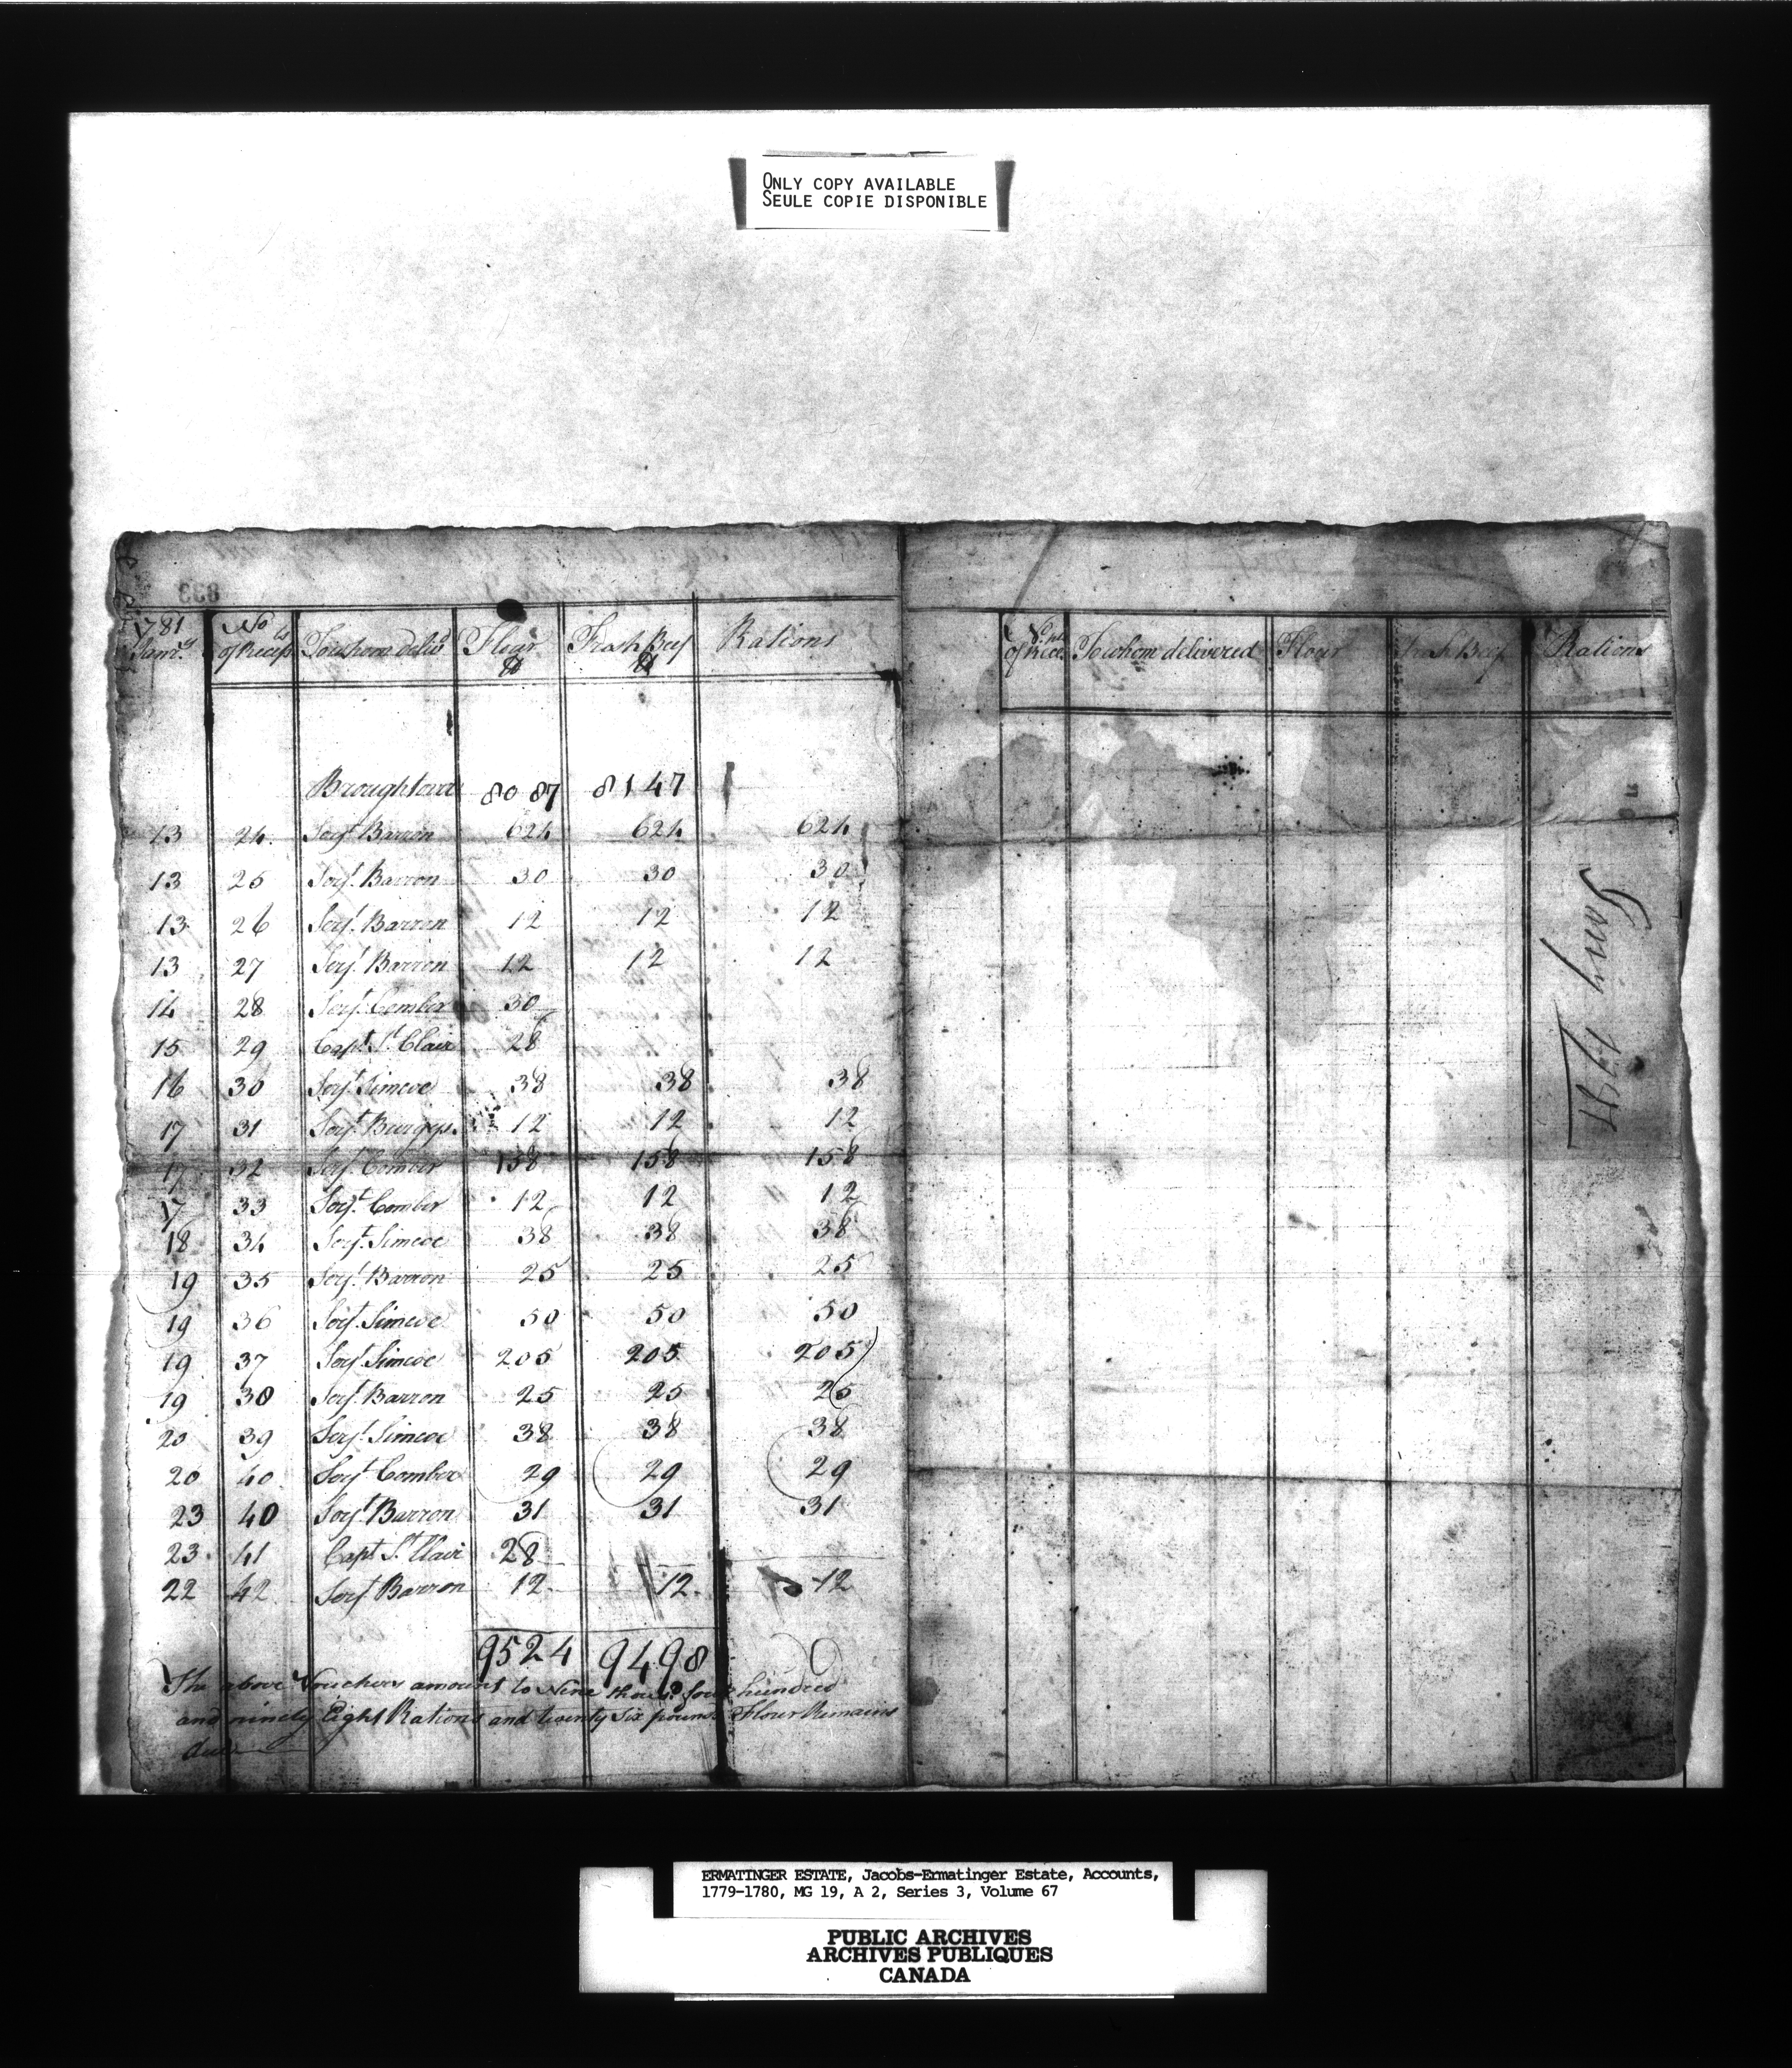 ONLY COPY AVAILABLE
SEULE COPIE DISPONIBLE
1781 Jany No of Recets To whom delivd Flour Fresh Beef Rations
Broughtover 8087 8147
13 24 Serjt Barron 624 624 624
13 25 Serjt Barron 30 30 30
13 26 Serjt Barron 12 12 12
13 27 Serjt Barron 12 12 12
14 28 Serjt Comber 30
15 29 Capt St Clair 28
16 30 Serjt Simcoe 38 38 38
17 31 Serjt Burgys 12 12 12
17 32 Serjt Comber 158 158 158
17 33 Serjt Comber 12 12 12
18 34 Serjt Simcoe 38 38 38
19 35 Serjt Barron 25 25 25
19 36 Serjt Simcoe 50 50 50
19 37 Serjt Simcoe 205 205 205
19 38 Serjt Barron 25 25 25
20 39 Serjt Simcoe 38 38 38
20 40 Serjt Comber 29 29 29
23 40 Serjt Barron 31 31 31
23 41 Capt St Clair 28
22 42 Serjt Barron 12 12 12
9524 9498
The above Vouchers amount to Nine thousd four hundred
and ninety Eight Rations and twenty Six pounds Flour Remains
due
of Rect To whom delivered Flour Fresh Beef Rations
Jany 1781
ERMATINGER ESTATE, Jacobs-Ermatinger Estate, Accounts,
1779-1780, MG 19, A 2, Series 3, Volume 67
PUBLIC ARCHIVES
ARCHIVES PUBLIQUES
CANADA